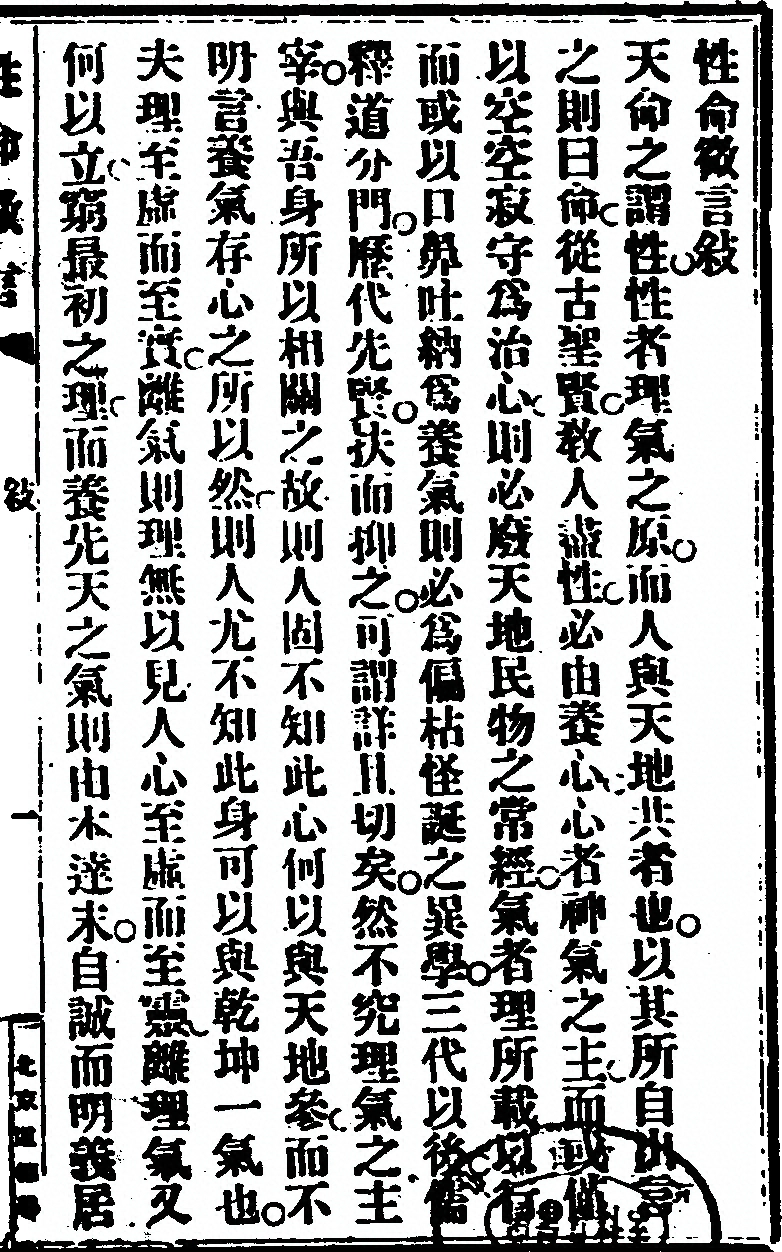 性命微言敍
天命之謂性性者理氣之原而人與天地共者也以其所自出言
之則曰命從古聖賢教人盡性必由養心心者神氣之主而或
以空空寂守爲治心則必廢天地民物之常經氣者理所載以行
而或以口鼻吐納爲養氣則必爲偏枯怪誕之異學三代以後儒
釋道分門歷代先賢扶而抑之可謂詳且切矣然不究理氣之主
宰與吾身所以相關之故則人固不知此心何以與天地參而不
明言養氣存心之所以然則人尤不知此身可以與乾坤一氣也
夫理至虛而至實離氣則理無以見人心至虛而至靈離理氣又
何以立窮最初之理而養先天之氣則由本達末自誠而明義居
性命微言
敍
一
北京道德學